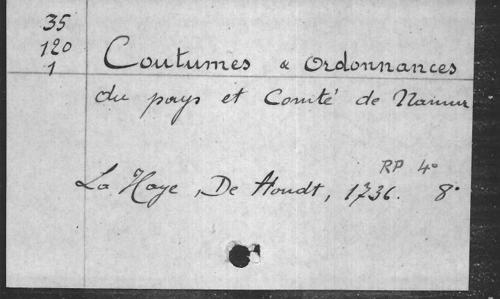 35
120
1
Coutumes & Ordonnances
du pays et Comité de Namur
RP 4°
La Haye, De Hondt, 1736. 8°